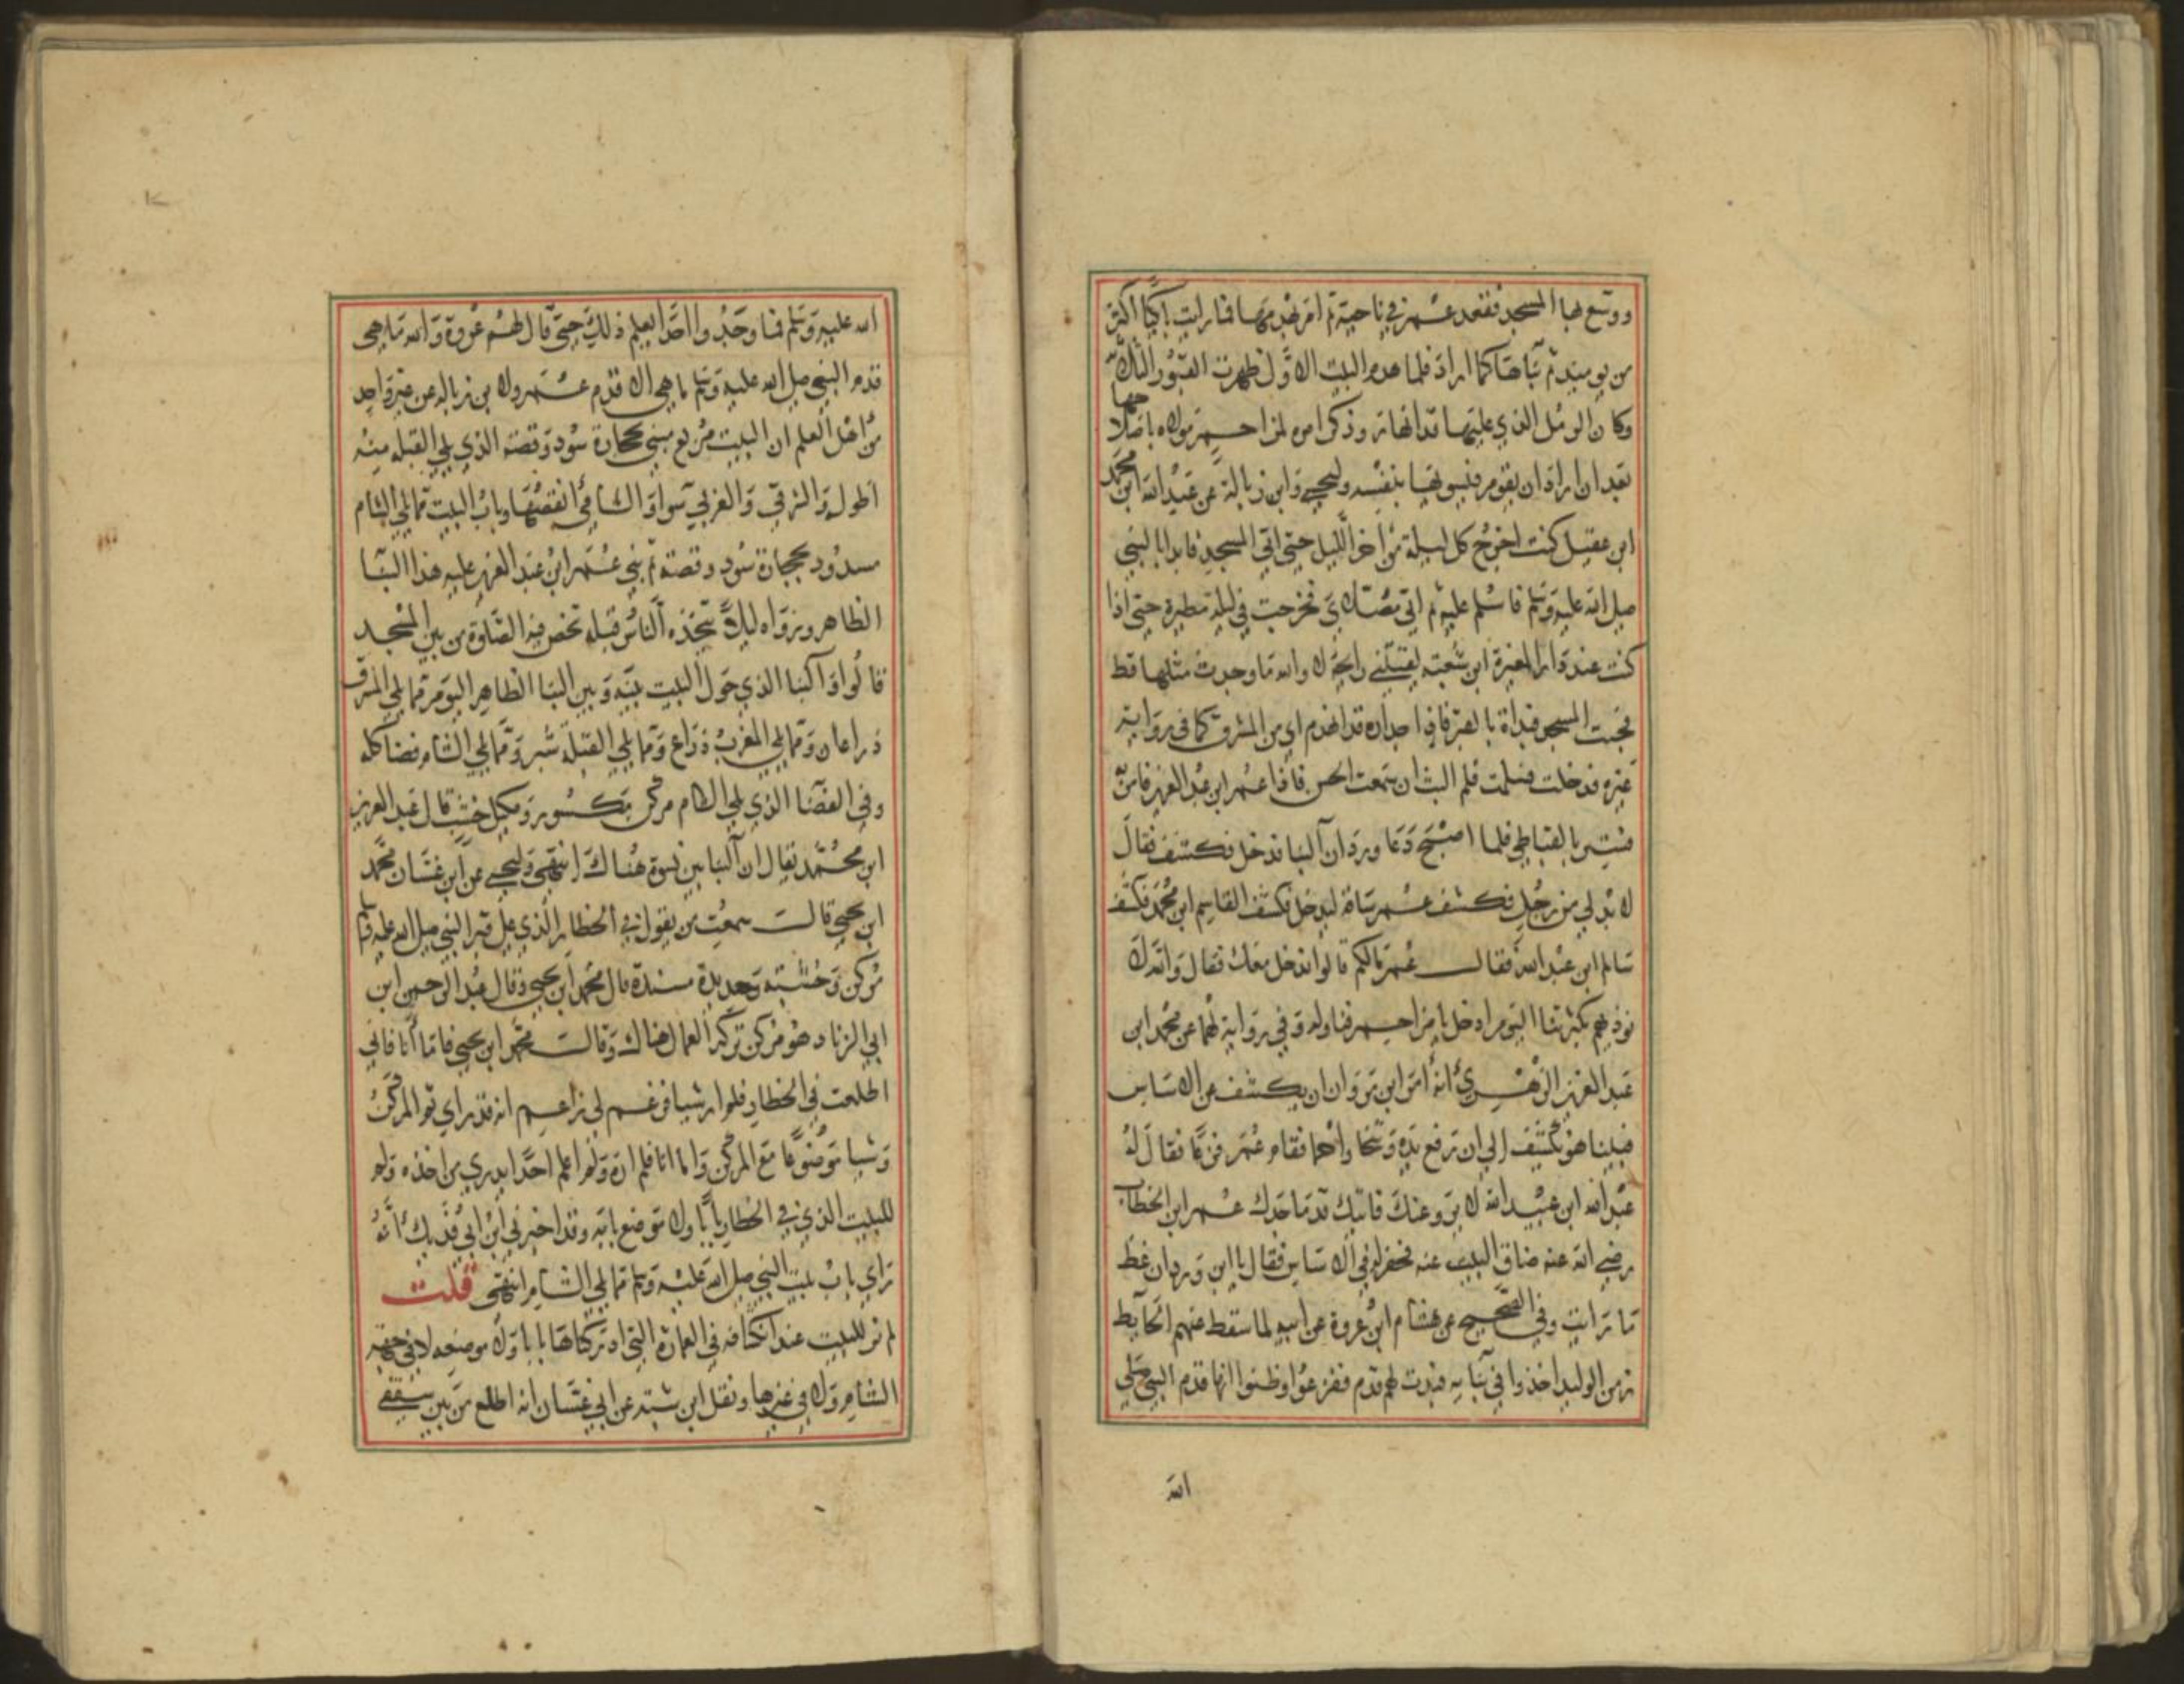 ووسع بها المسجد فقعد عمر في ناحيته ثم امر بهدمها فما رايت باكيا اكثر
من يوميذ ثم بناها كما اراد فلما هدم البيت الاول ظهرت القبور الثلاثة
وكان الرمل الذي عليها قد انهار وذكر امره لمزاحم مولاه باصلاحها
بعد ان اراد ان يقوم فيسويها بنفسه وليحيى وابن زبالة عن عبد الله ابن محمد
ابن عقيل كنت اخرج كل ليلة من اخر الليل حتى اتي المسجد فابدا بالنبي
صلى الله عليه وسلم فاسلم عليه ثم اتي مصلاي فخرجت في ليلة مطيرة حتى اذا
كنت عند دار المغيرة ابن شعبة لقيتني رايحة لا والله ما وجدت مثلها قط
فجيت المسجد فبداة بالقبر فاذا جداره قد انهدم اي من المشرق كما في رواية
غيره فدخلت فسلمت فلم البث ان سمعت الحس فاذا عمر ابن عبد العزيز فامر به
فستر بالقباطي فلما اصبح دعا وردان البنا فدخل فكشف فقال
لا بد لي من رجل فكشف عمر ساقه ليدخل فكشف القاسم ابن محمد فكشف
سالم ابن عبد الله فقال عمر مالكم قالوا ندخل معك فقال والله لا
نوذيهم بكثرتنا اليوم ادخل يا مزاحم فناوله وفي رواية لهما عن محمد ابن
عبد العزيز الزهري انه امر ابن مروان ان يكشف عن الاساس
فبينا هو يكشف الى ان رفع يده وتنحا واجما فقام عمر فزعا فقال له
عبد الله ابن عبيد الله لا يروعنك فانيك قدما جدك عمر ابن الخطاب
رضي الله عنه ضاق البيت عنه فحفر له في الاساس فقال يا ابن وردان غط
ما رايت وفي الصحيح عن هشام ابن عروة عن ابيه لما سقط عنهم الحايط
زمن الوليد اخذوا في بنايه فبدت لهم قدم ففزعوا وظنوا انها قدم النبي صلى
الله
الله عليه وسلم فما وجدوا احدا يعلم ذلك حتى قال لهم عروة والله ما هي
قدم النبي صلى الله عليه وسلم ما هي الا قدم عمر ولا بن زباله عن غير واحد
من اهل العلم ان البيت مربع مبني بحجارة سود وقصه الذي يلي القبله منه
اطول والشرقي والغربي سوا والشامي انقصها وباب البيت مما يلي الشام
مسدود بحجارة سود وقصة ثم بنى عمر ابن عبد العزيز عليه هذا البنا
الظاهر وزواه ليلا يتخذه الناس قبله تخص فيه الصلوة من بين المسجد
قالوا والبنا الذي حول البيت بينه وبين البنا الظاهر اليوم مما يلي المشرق
ذراعان ومما يلي المغرب ذراع ومما يلي القبلة شبر ومما يلي الشام فضا كله
وفي الفضا الذي يلي الشام مركن مكسور ومكيل خشب قال عبد العزيز
ابن محمد يقال ان البنايين نسوه هناك انتهى وليحيى عن ابن غسان محمد
ابن يحيى قالت سمعت من يقول في الخطار الذي على قبر النبي صلى الله عليه وسلم
مركن وخشبة وحديدة مسندة قال محمد ابن يحيى وقال عبد الرحمن ابن
ابي الزناد هو مركن تركه العمال هناك وقالت محمد ابن يحيى فاما انا فاني
اطلعت في الخطار فلم ار شيا فزعم لي زاعم انه قد راي ثم المركن
وشيا موضوعا مع المركن واما انا فلم اره ولم اعلم احدا يدري من اخذه ولم
للبيت الذي في الخطار بابا ولا موضع بابه وقد اخبرني ابن ابي فديك انه
راي باب بيت النبي صلى الله عليه وسلم مما يلي الشام انتهى قلت
لم نر للبيت عند انكشافه في العمارة التي ادركناها بابا ولا موضعه لا في جهة
الشام ولا في غيرها ونقل ابن شبة عن ابي غسان انه اطلع من بين سقفي